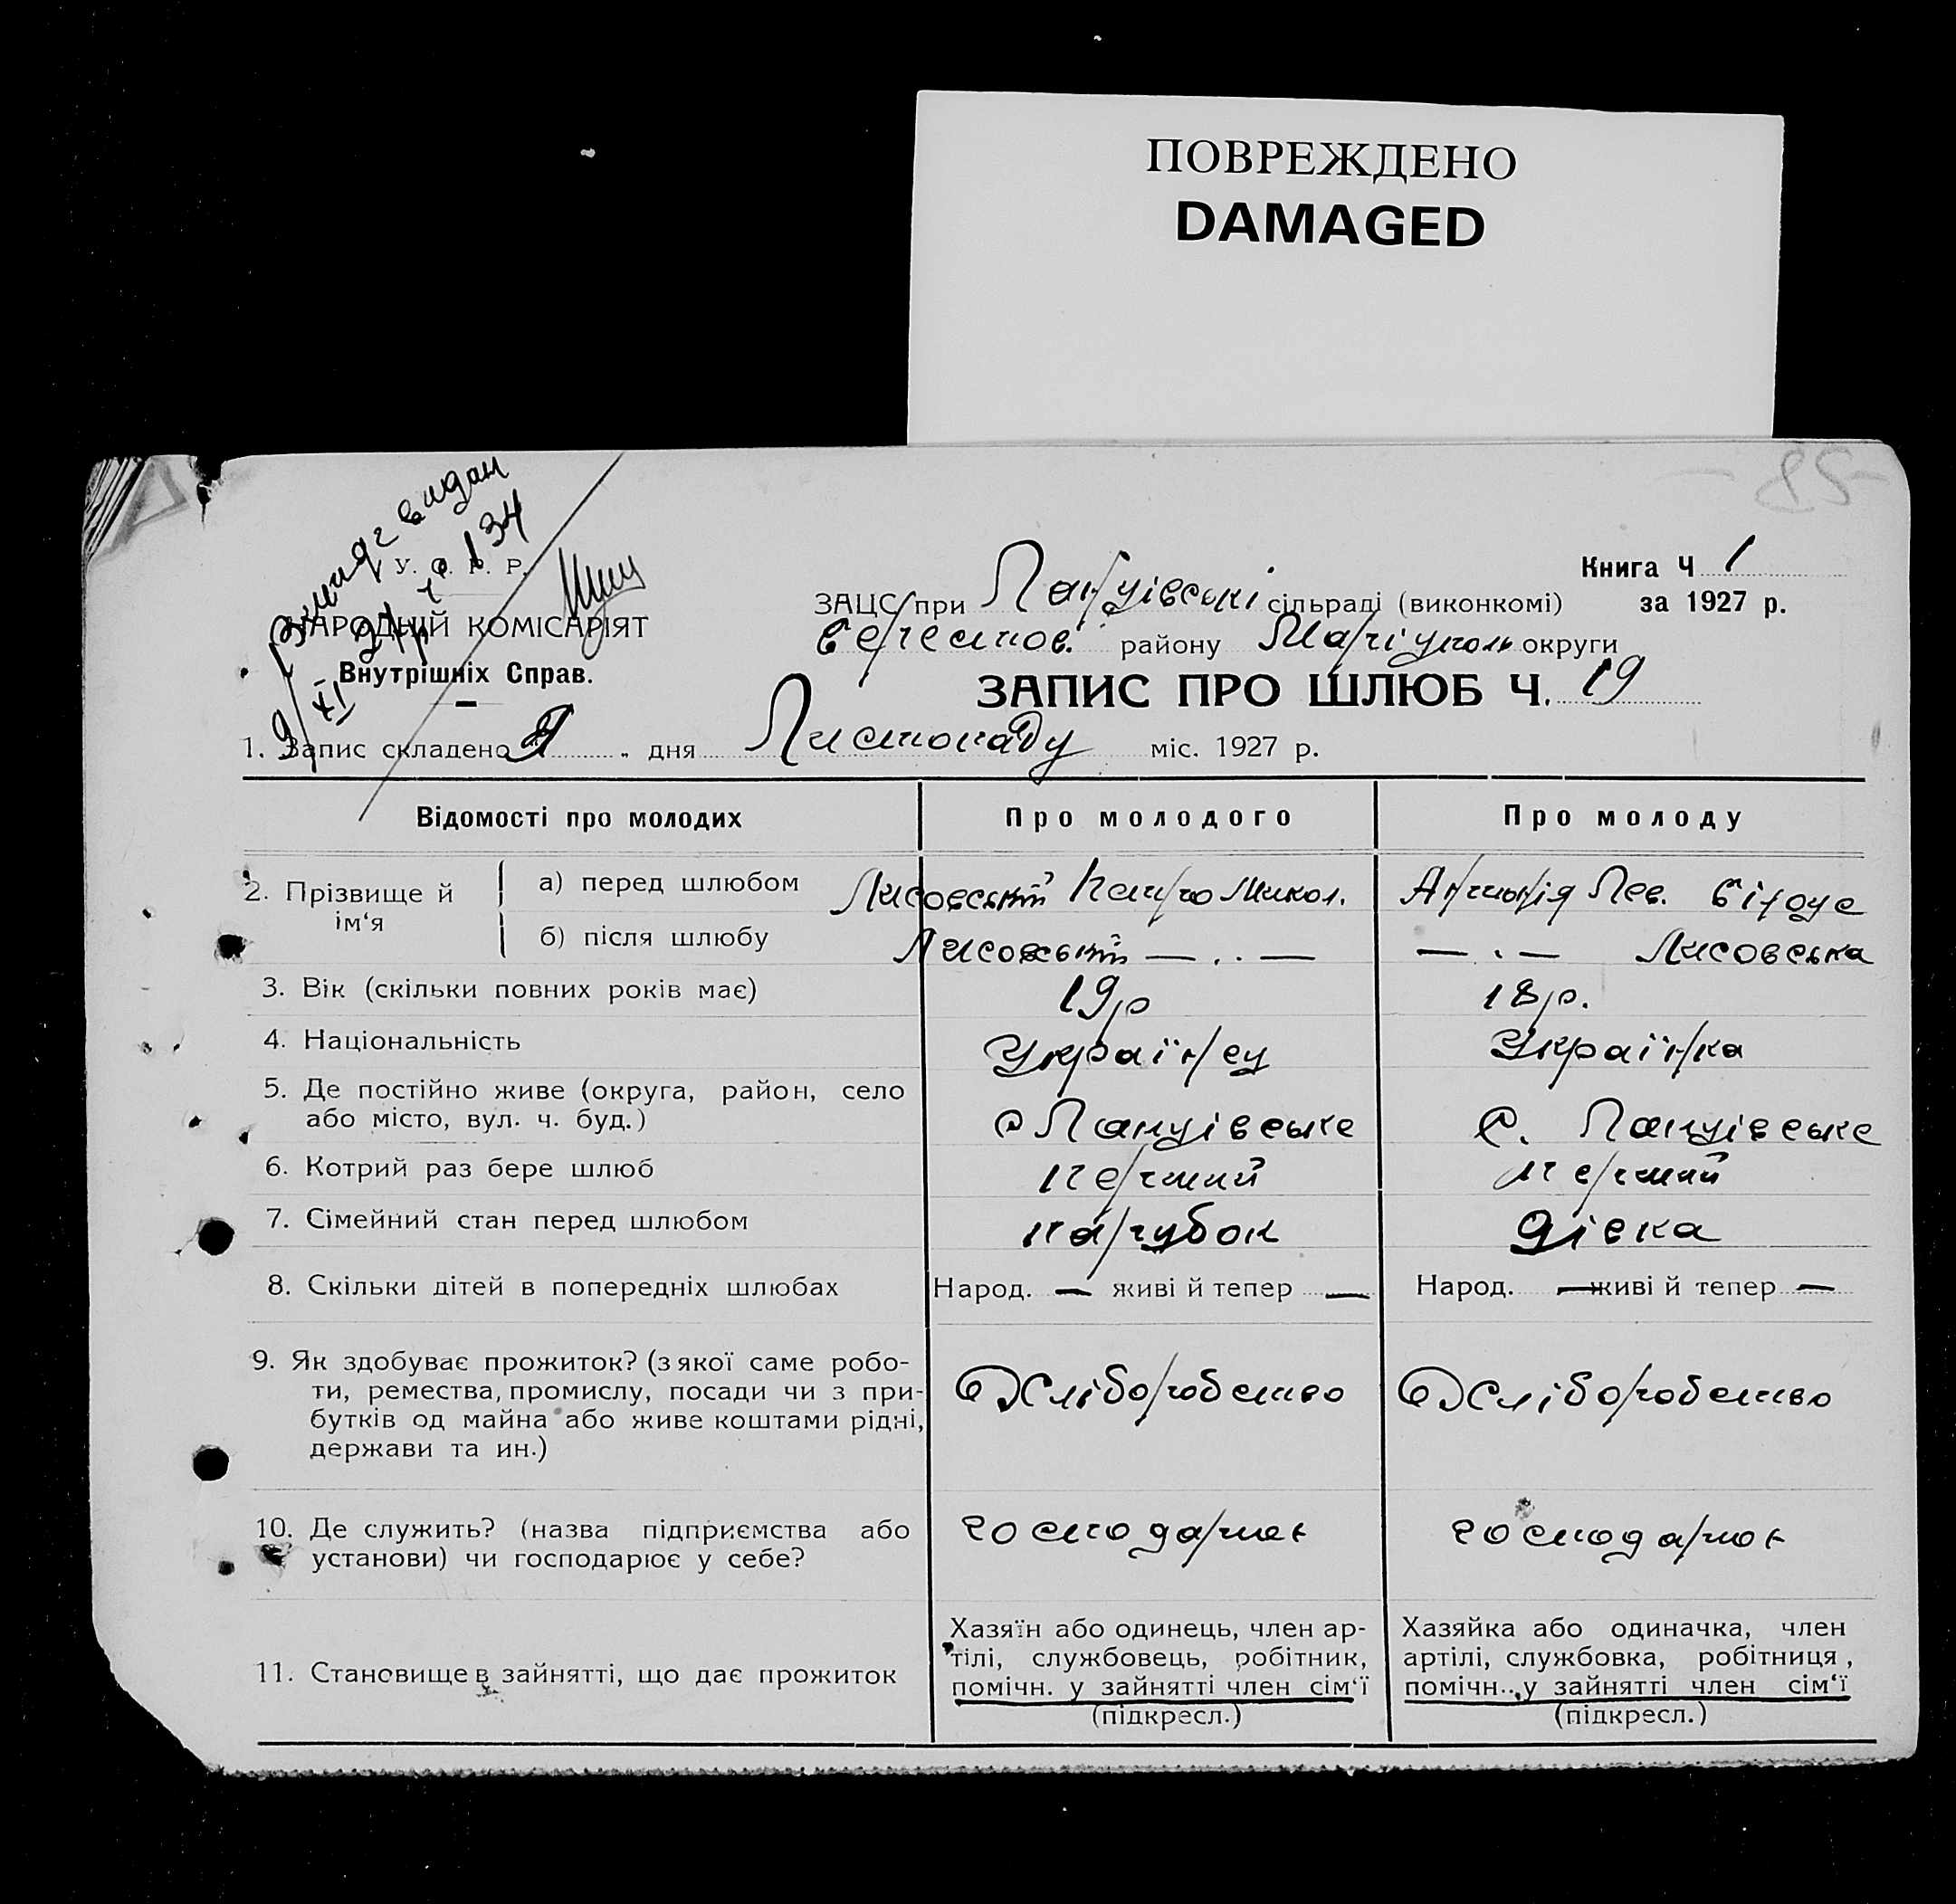 ПОВРЕЖДЕНО
DAMAGED
85
видан
134
У. С. Р. Р.
НАРОДНІЙ КОМІСАРІЯТ
Внутрішніх Справ.
9/XI 27 р
Книга Ч 1
за 1927 р.
ЗАЦС при сільраді (виконкомі)
району Маріуполь округи
ЗАПИС ПРО ШЛЮБ Ч. 19
1. Запис складено 9 дня Листопаду міс. 1927 р.
Відомості про молодих Про молодого Про молоду
2. Прізвище й ім‘я
а) перед шлюбом Лисовський Микол. Лев. Білоус
б) після шлюбу Лисовський — . . — — . — Лисовська
3. Вік (скільки повних років має) 19 р 18 р.
4. Національність Українец Українка
5. Де постійно живе (округа, район, село
або місто, вул. ч. буд.) с Ланцівське с. Ланцівське
6. Котрий раз бере шлюб перший перший
7. Сімейний стан перед шлюбом парубок дівка
8. Скільки дітей в попередніх шлюбах Народ. — живі й тепер — Народ. — живі й тепер —
9. Як здобуває прожиток? (з якої саме робо-
ти, ремества, промислу, посади чи з при-
бутків од майна або живе коштами рідні,
держави та ин.)
Хліборобство Хліборобство
10. Де служить? (назва підприємства або
установи) чи господарює у себе?
господарює господарює
11. Становище в зайнятті, що дає прожиток
Хазяїн або одинець, член ар-
тілі, службовець, робітник,
помічн. у зайнятті член сім‘ї
(підкресл.)
Хазяйка або одиначка, член
артілі, службовка, робітниця,
помічн. у зайнятті член сім‘ї
(підкресл.)